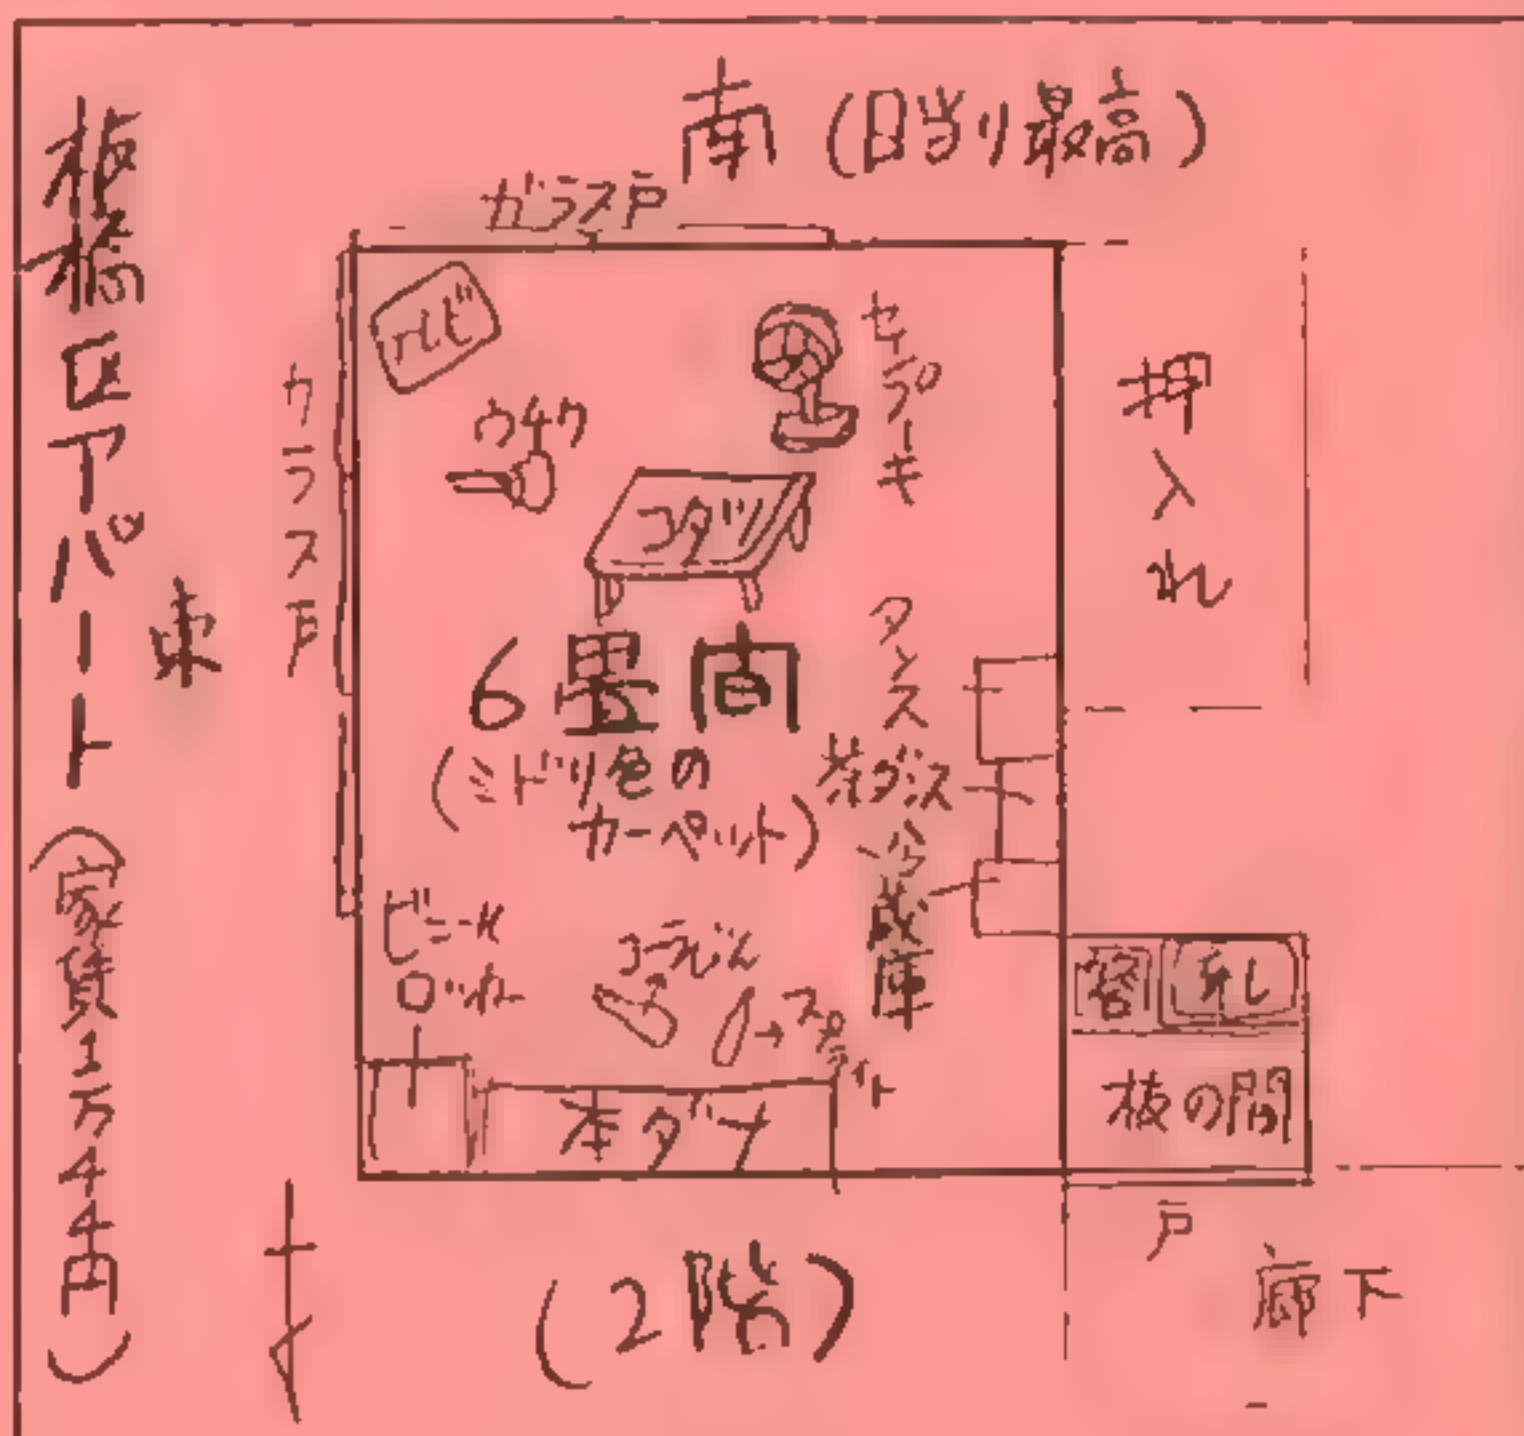 板橋区アパート(家賃1万4千円)
南(日当り最高)
ガラス戸
東
ガラス戸
テレビ
ウチワ
センプーキ
コタツ
押入れ
6畳間
(ミドリ色の
カーペット)
タンス
茶ダンス
冷蔵庫
ビニール
ロッカー
コーラビン
スプライト
本ダナ
流し
板の間
戸
廊下
(2階)